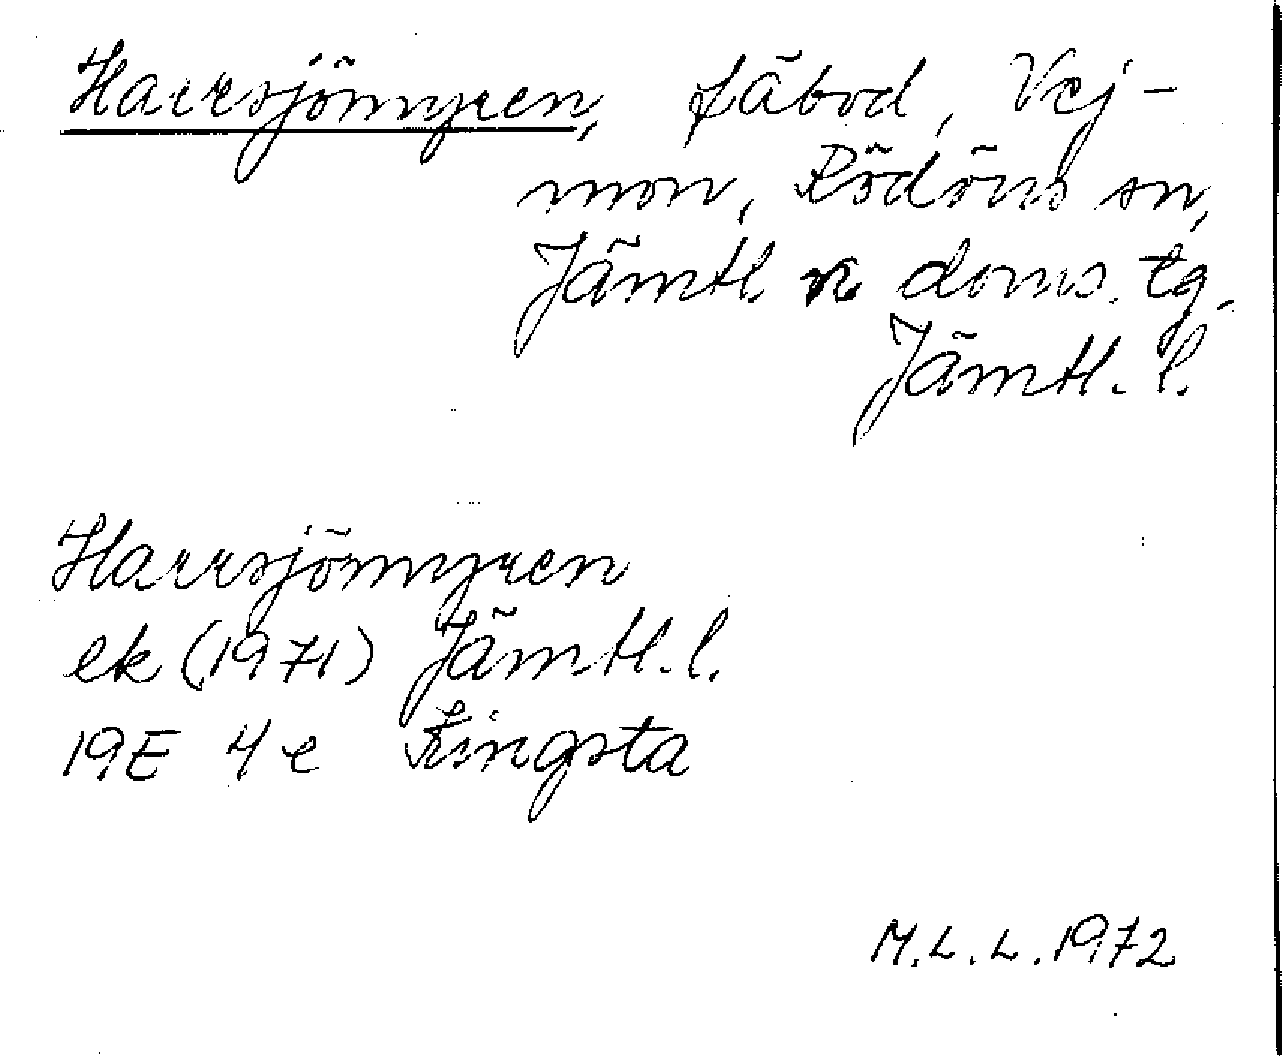 Harrsjömyren, fäbod, Vej-
mon, Rödöns sn,
Jämtl. n doms. tg.
Jämtl. l.
Harrsjömyren
ek (1971) Jämtl. l.
19E 4e Ringsta
M.L.L. 1972